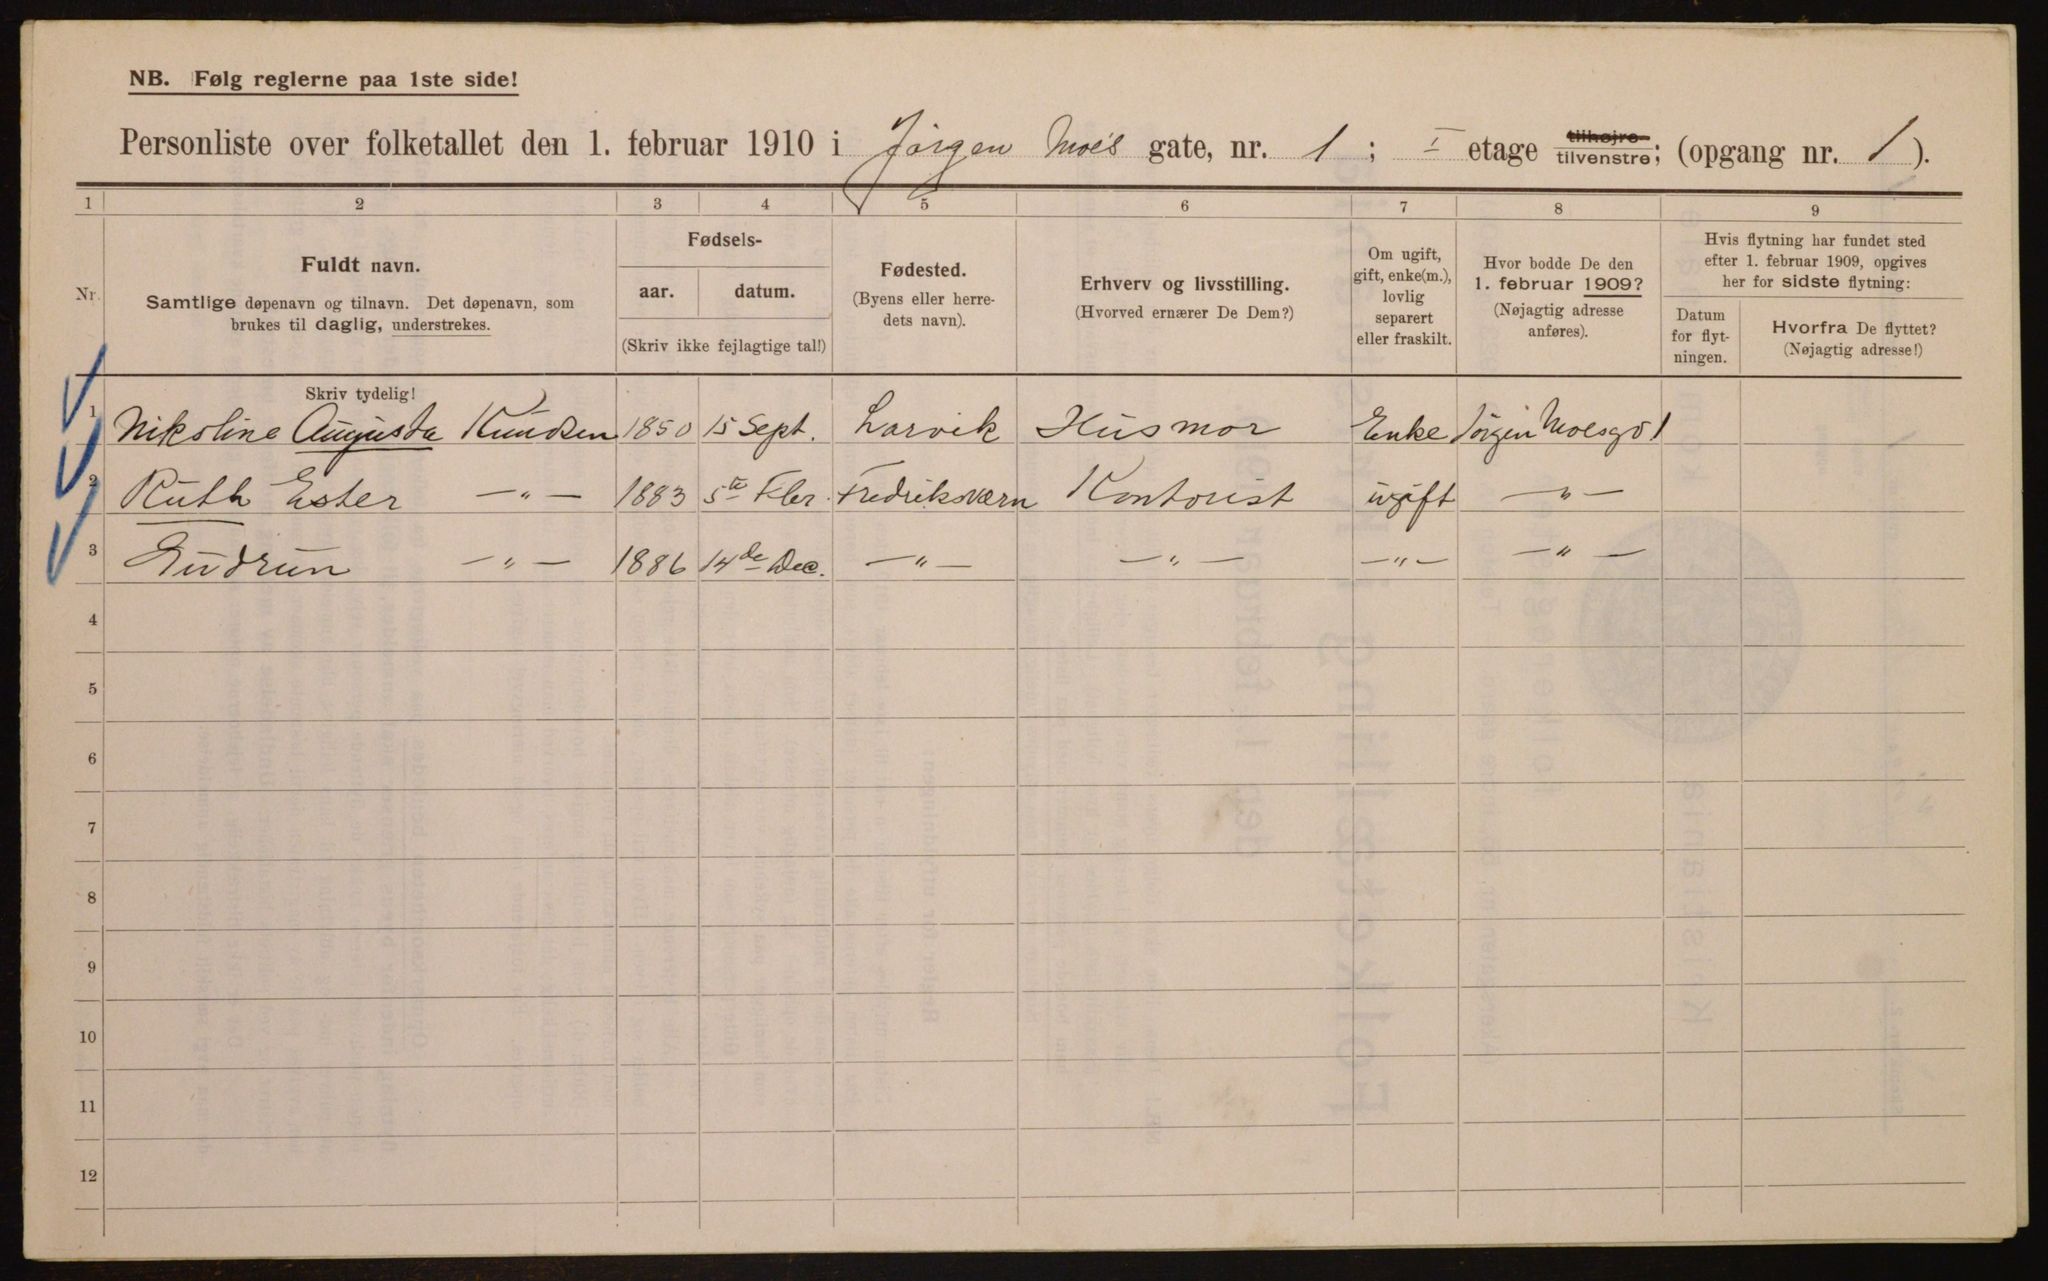 NB. Følg reglerne paa 1ste side!
Personliste over folketallet den 1. februar 1910 i Jørgen Moes gate, nr. 1; I etage tilhøjre tilvenstre; (opgang nr. 1).
1 2 3 4 5 6 7 8 9
Nr.
Fuldt navn.
Samtlige døpenavn og tilnavn. Det døpenavn, som
brukes til daglig, understrekes.
Fødsels-
aar. datum.
(Skriv ikke fejlagtige tal!)
Fødested.
(Byens eller herre-
dets navn).
Erhverv og livsstilling.
(Hvorved ernærer De Dem?)
Om ugift,
gift, enke(m.),
lovlig
separert
eller fraskilt.
Hvor bodde De den
1. februar 1909?
(Nøjagtig adresse
anføres).
Hvis flytning har fundet sted
efter 1. februar 1909, opgives
her for sidste flytning:
Datum
for flyt-
ningen.
Hvorfra De flyttet?
(Nøjagtig adresse!)
Skriv tydelig!
1 Nikoline Augusta Knudsen 1850 15 Sept. Larvik Husmor Enke Jörgen Moesg 1
2 Ruth Ester —„— 1883 5te Fbr. Fredriksværn Kontorist ugift —„—
3 Gudrun —„— 1886 14de Dec. —„— —„— —„— —„—
4
5
6
7
8
9
10
11
12